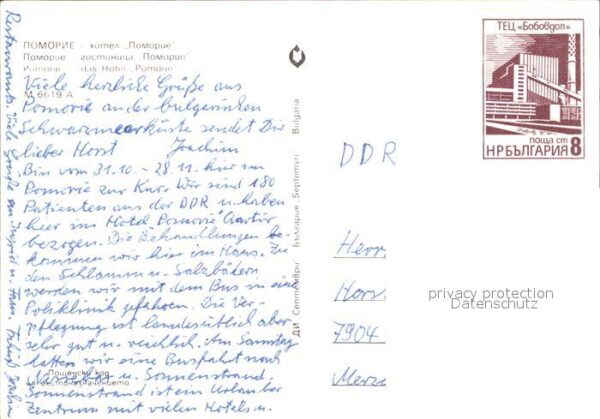 ПОМОРИЕ — хотел „Поморие"
Поморие гостиница „Поморие"
Pomorie das Hotel „Pomorie
М 6619 А
Viele herzliche Grüße aus
Pomorie an der bulgarischen
Schwarzmeerküste sendet Dir
lieber Horst Joachim
Bin vom 31.10. – 28.11. hier in
Pomorie zur Kur. Wir sind 180
Patienten aus der DDR u. haben
hier im Hotel Pomorie Quartier
bezogen. Die Behandlungen be-
kommen wir hier im Haus. Zu
den Schlamm u. Salzbädern
werden wir mit dem Bus in eine
Poliklinik gefahren. Die Ver-
pflegung ist landesüblich aber
sehr gut u. reichlich. Am Samstag
hatten wir eine Busfahrt nach
Nessebar u. Sonnenstrand.
Sonnenstrand ist ein Urlauber
Zentrum mit vielen Hotels u.
Restaurants. Viele Grüße an Ingrid u. Fam.
Пощенски код
местоназначението
ДИ Септември България Septemvri Bulgaria
ТЕЦ „Бобовдол"
поща ст 8
НР БЪЛГАРИЯ
DDR
Herr
Hors
7904
Merz
privacy protection
Datenschutz